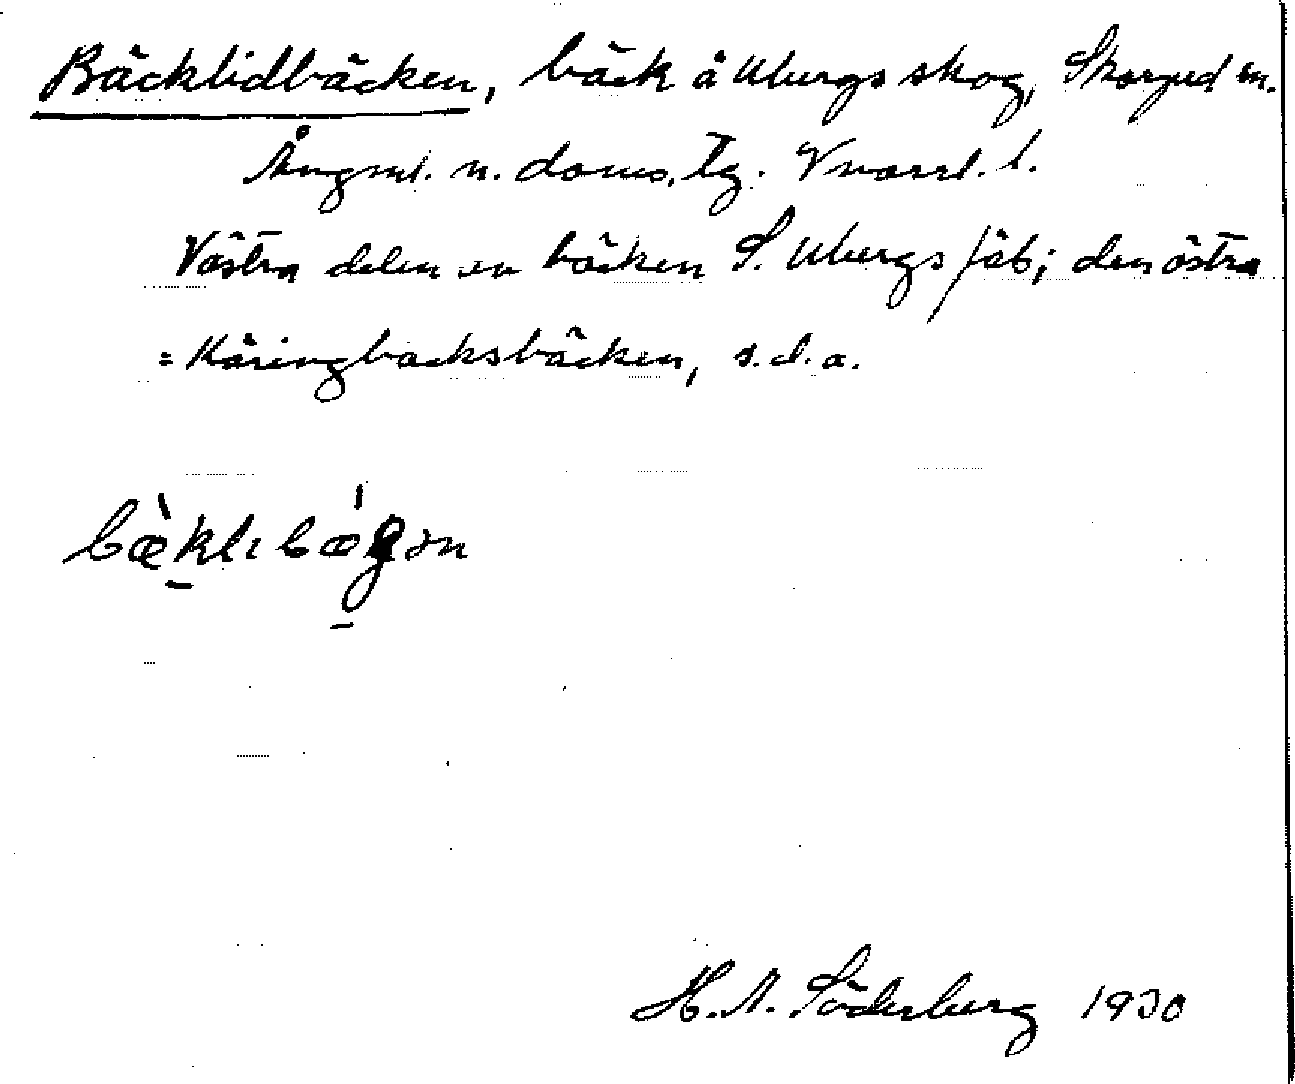 Bäcklidbäcken, bäck å Ubergs skog, Skorped sn.
Ångml. n. doms. tg. Vnorrl. l.
Västra delen av bäcken S. Ubergs fäb; den östra
= Käringbacksbäcken, s.d.a.
bæ̀klɩbǽgən
H. A. Söderberg 1930